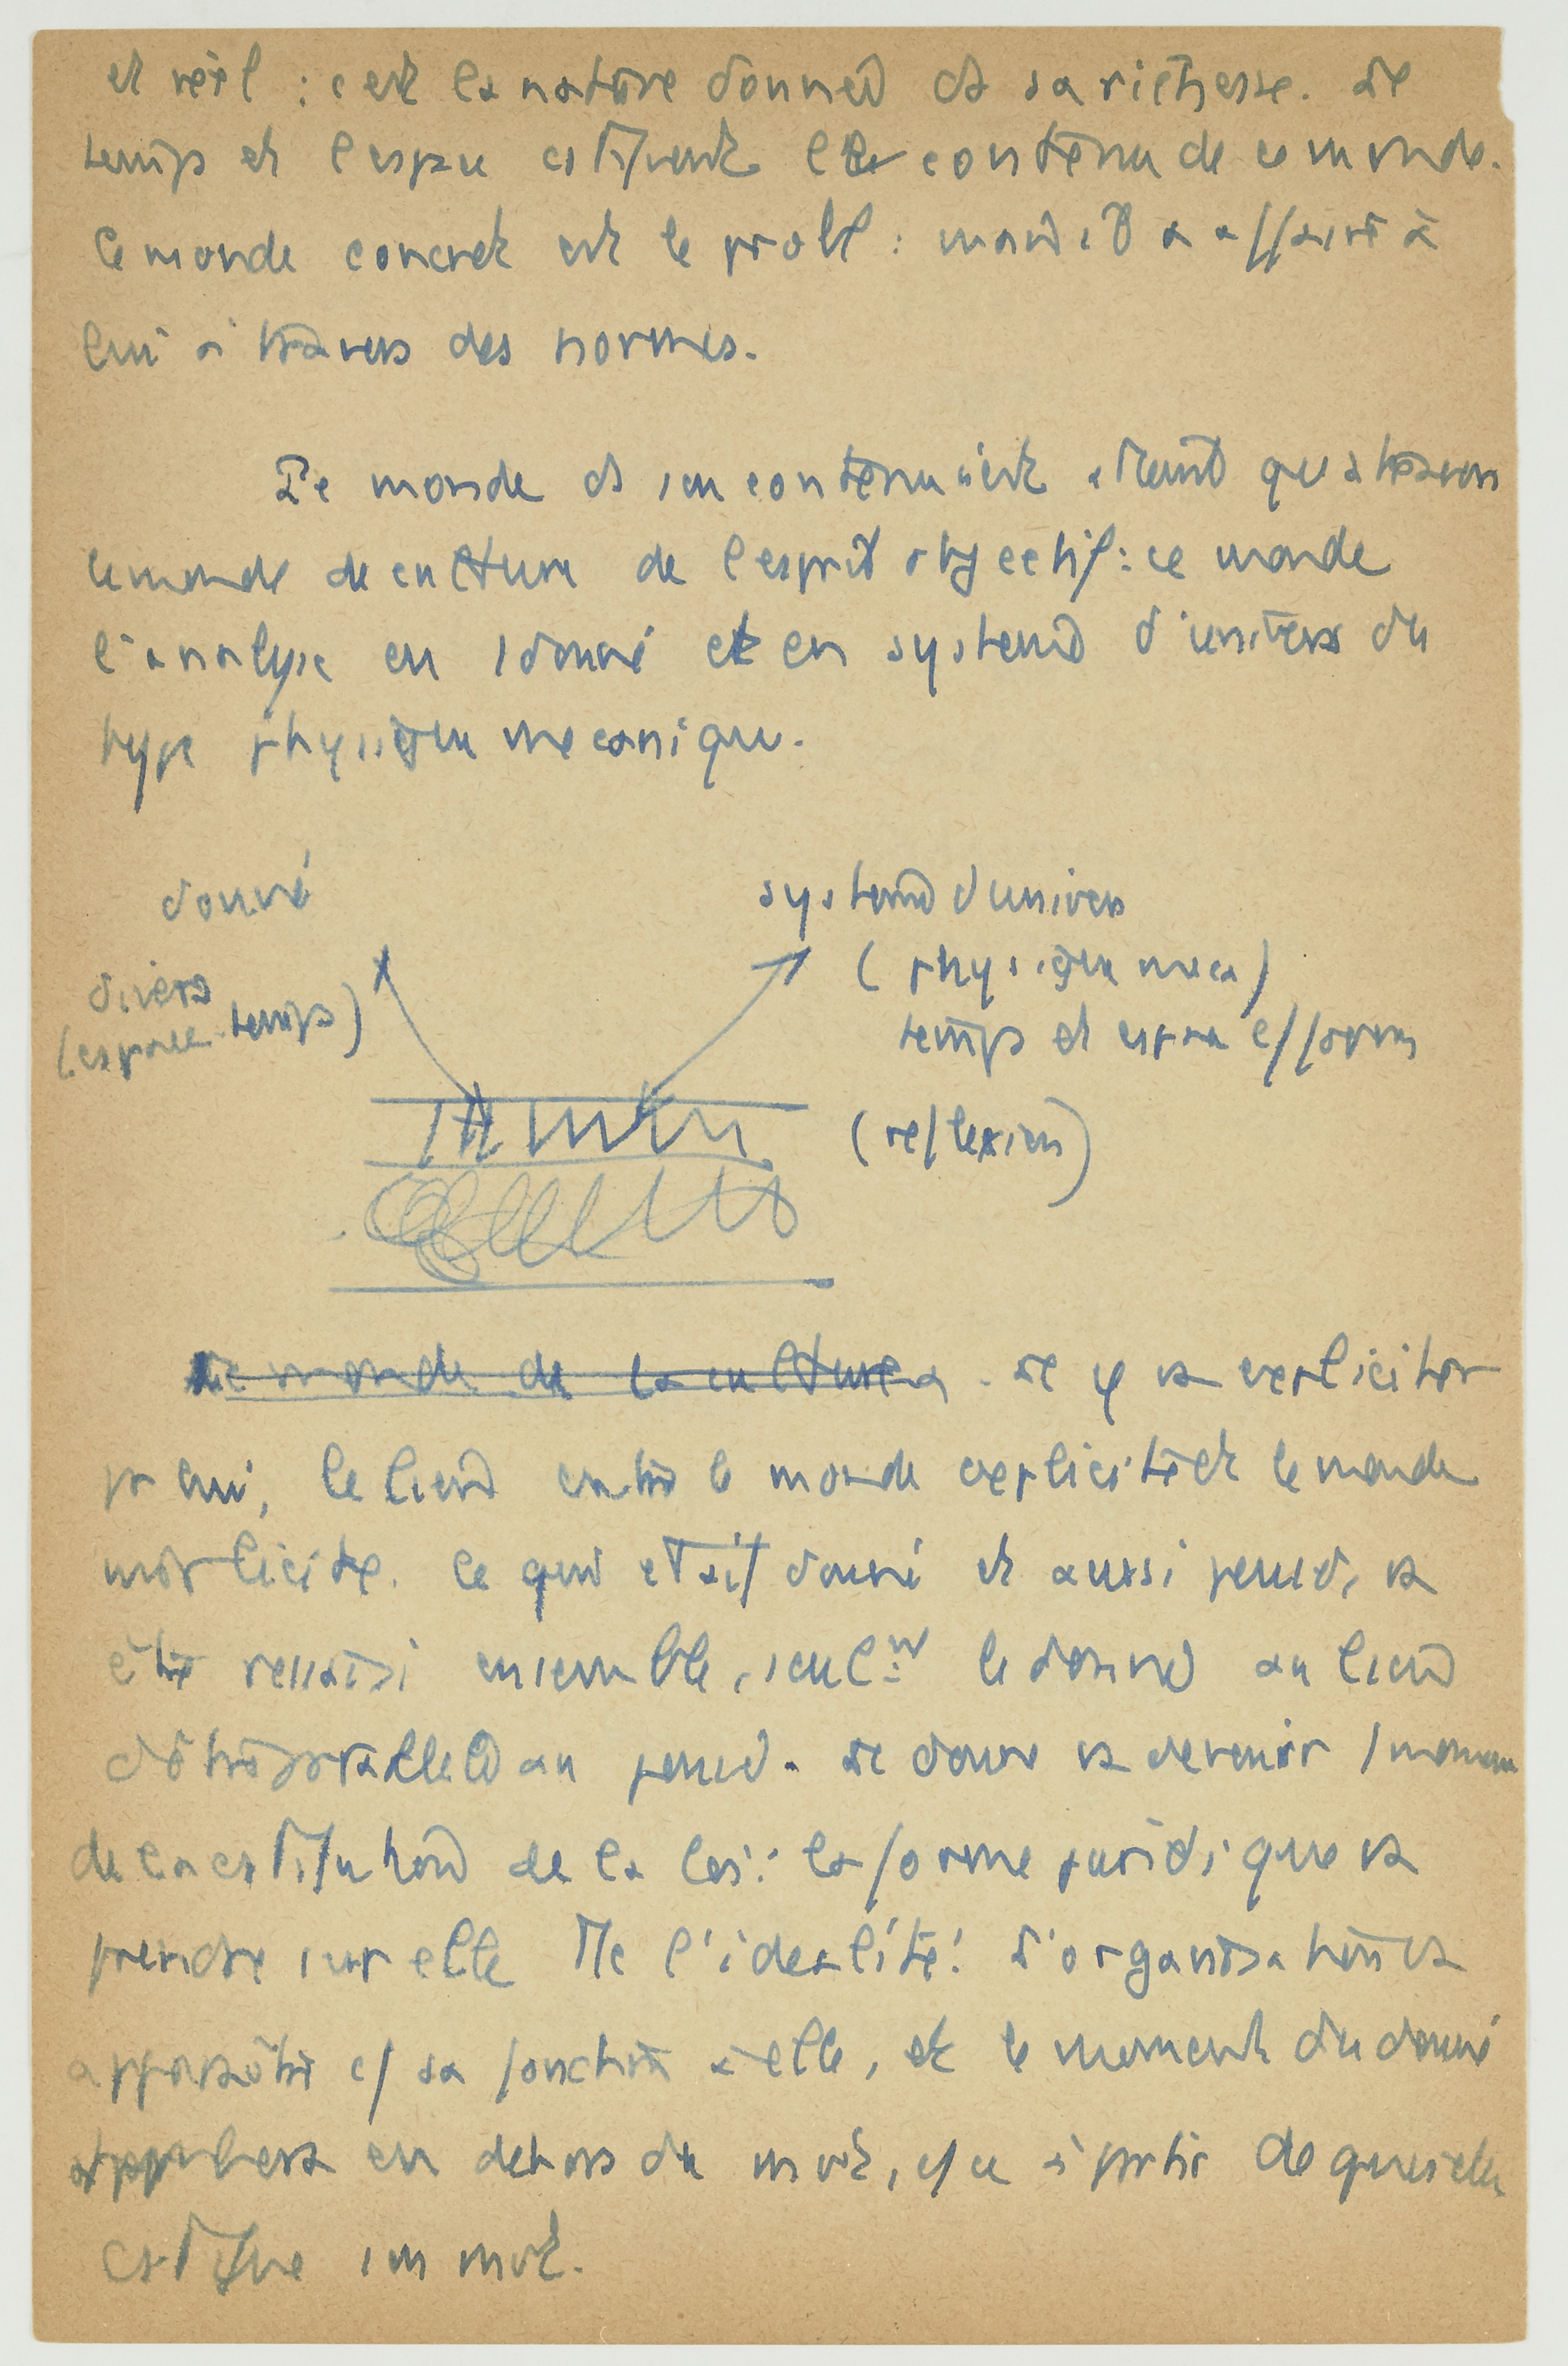 et réel : c'est la nature donnée et sa richesse. Le
temps et l'espace cstituent le contenu de ce monde.
Ce monde concret est le probl : mais il a affaire à
lui à travers des normes.
Le monde et son contenu n'est atteint qu'à travers
le monde de culture de l'esprit objectif : ce monde
l'analyse en 1 donné et en système d'univers du
type physique mécanique.
donné
système d'univers
divers
(physique meca)
(espace-temps)
temps et espace c/ formes
(réflexion)
Le monde de la culture a. Le φ va expliciter
pr lui, le lien entre le monde explicité et le monde
implicite. Ce qui était donné et aussi pensé, va
être ressaisi ensemble, seult le donné au lieu
d'être parallèle au pensé. Le donné va devenir 1 moment
de la cstitution de la loi : la forme juridique va
prendre sur elle tte l'idéalité. L'organisation va
apparaître c/ sa fonction à elle, et le moment du donné
en dehors du moi, c/ ce à partir de quoi elle
cstitue son moi.